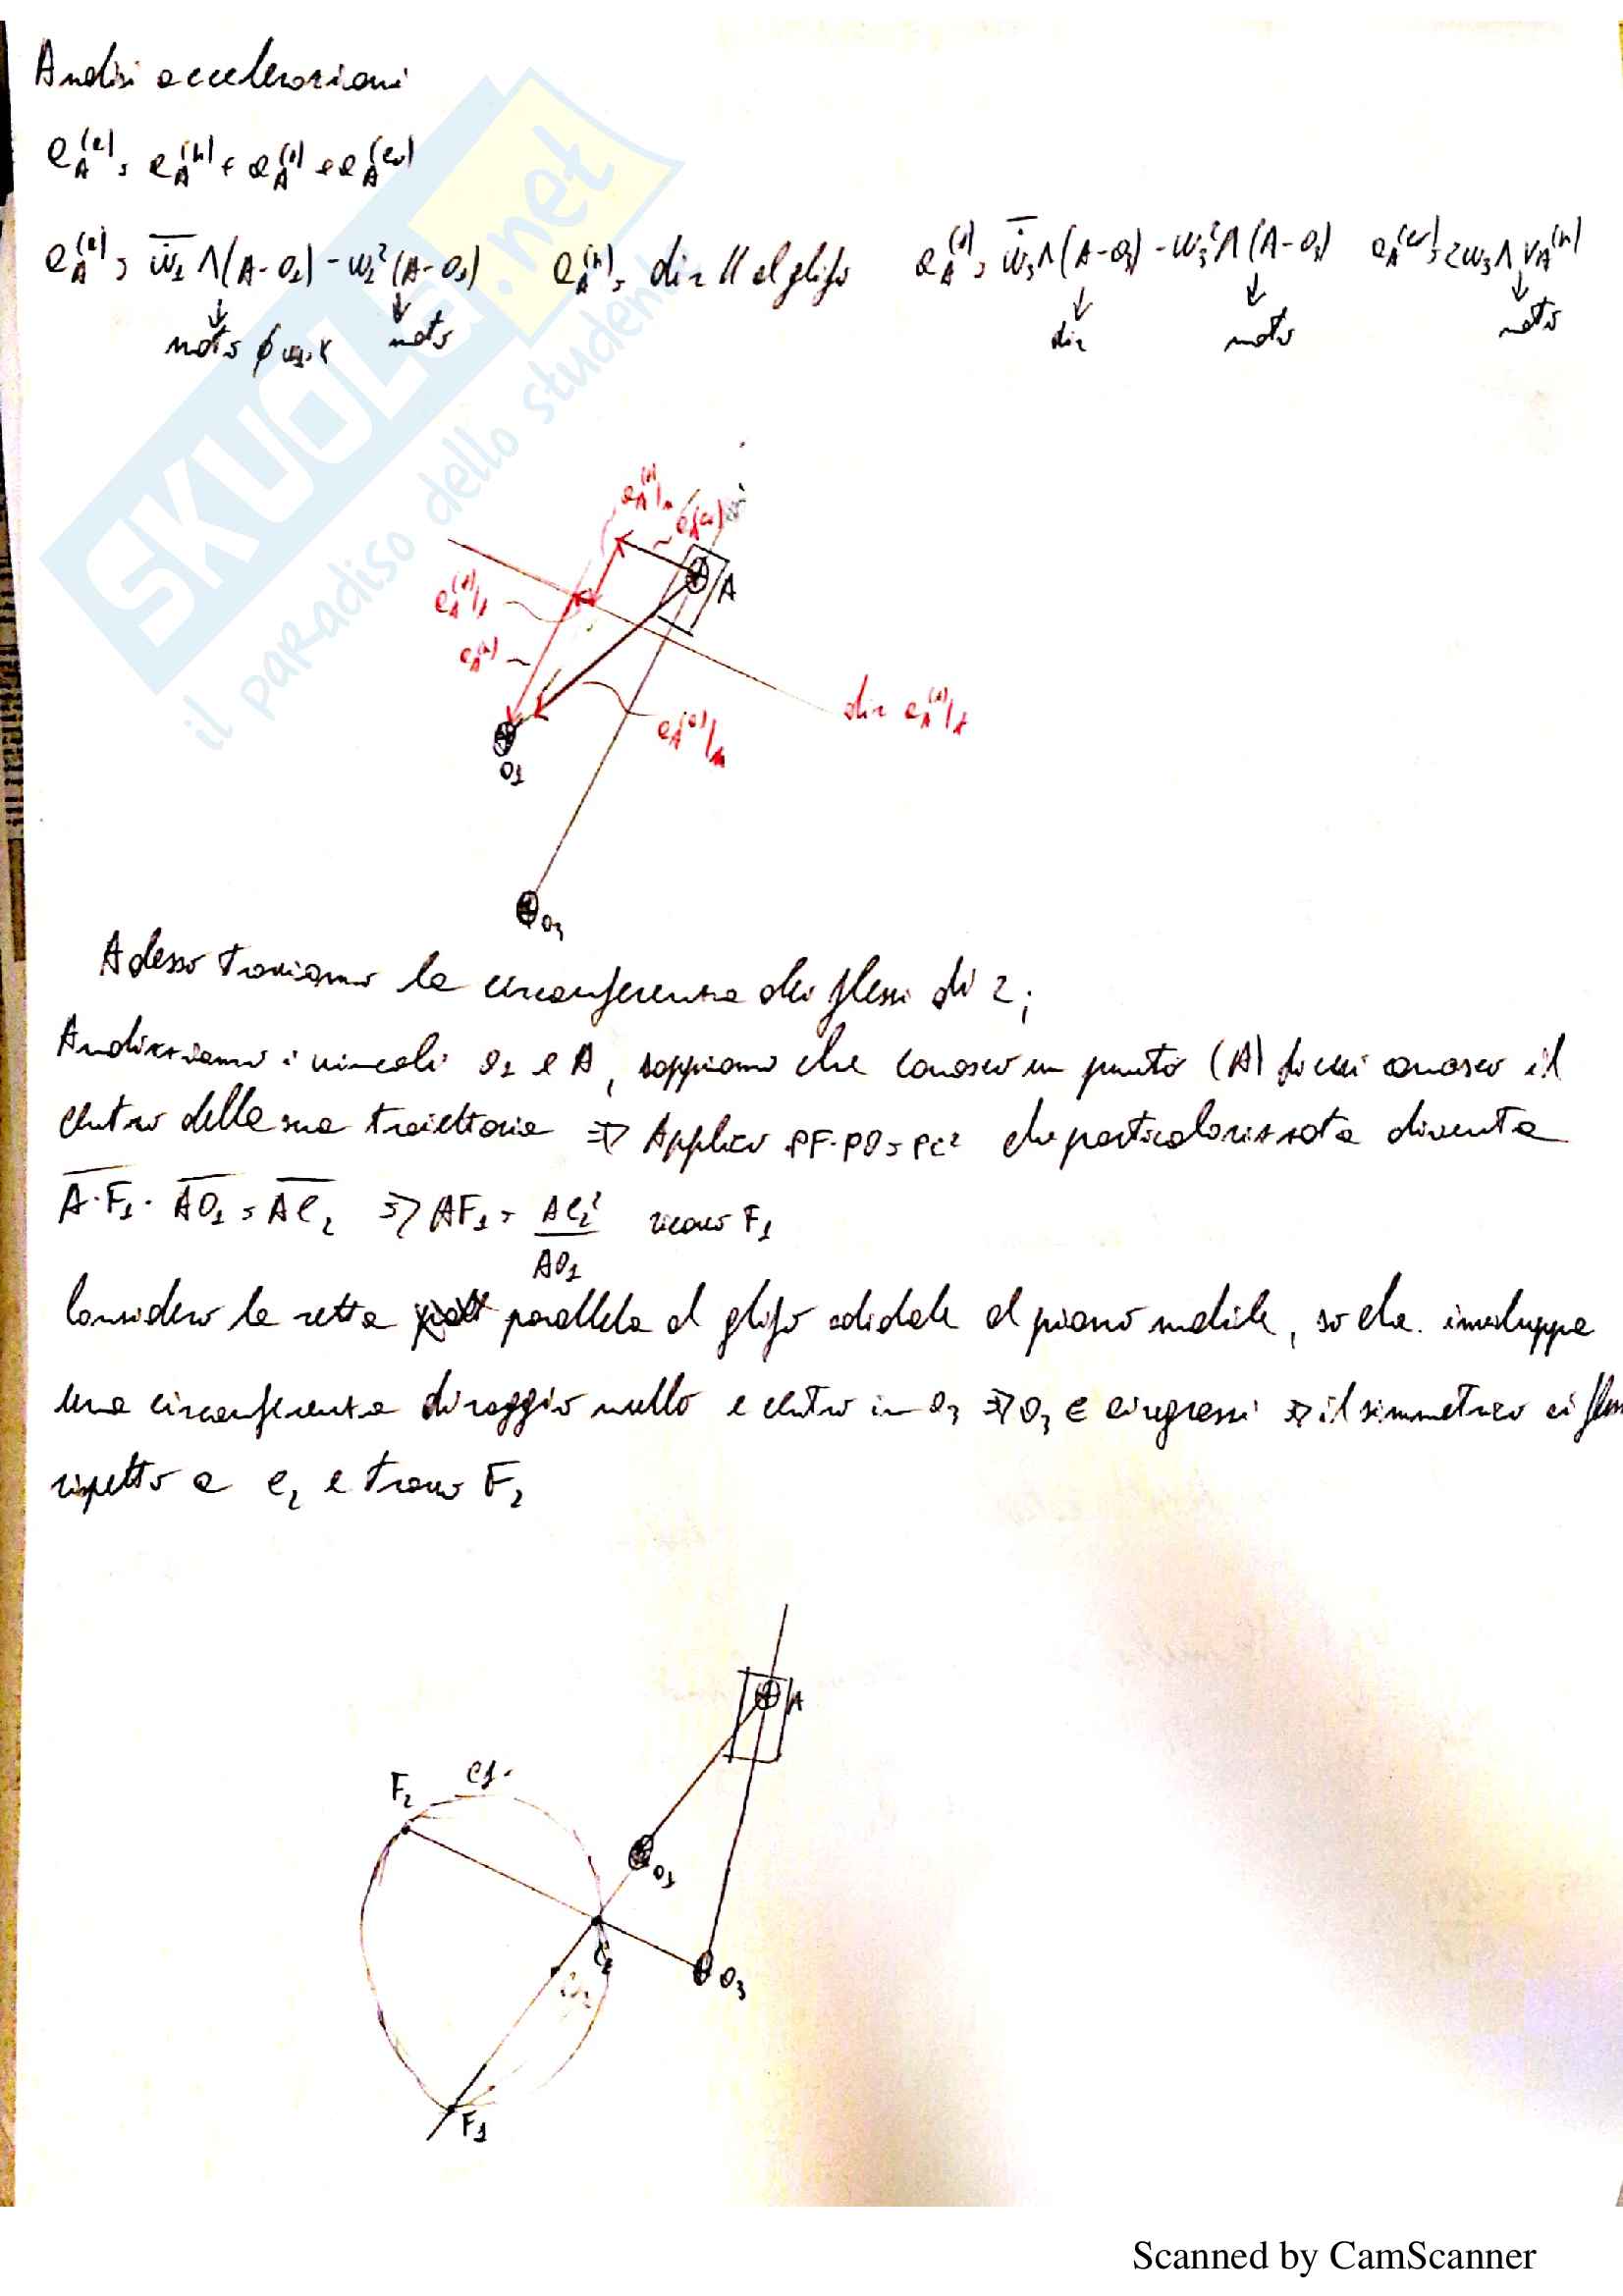 Analisi accelerazioni
a_A^(a) = a_A^(r) + a_A^(s) + a_A^(co)
a_A^(a) = ω̇₁ ∧ (A-O₁) - ω₁² (A-O₁)    a_A^(r) = dir // al glifo    a_A^(s) = ω̇₃ ∧ (A-O₃) - ω₃² ∧ (A-O₃)    a_A^(co) = 2ω₃ ∧ v_A^(r)
↓ ↓ ↓ ↓ ↓
noto noto dir noto noto
SKUOLA.net
il paradiso dello studente
a_A^(s)|n
a_A^(co)
A
a_A^(s)|t
a_A^(r)
dir a_A^(s)|t
a_A^(a)|n
O₁
O₃
Adesso troviamo la circonferenza dei flessi di 2;
Analizziamo i vincoli O₁ e A, sappiamo che conosco un punto (A) di cui conosco il
centro della sua traiettoria ⇒ Applico PF·PO = PC² che particolarizzata diventa
A·F₁ · AO₁ = AC₂ ⇒ AF₁ = AC₂² / AO₁ trovo F₁
Considero la retta parallela al glifo solidale al piano mobile, so che inviluppa
una circonferenza di raggio nullo e centro in O₃ ⇒ O₃ ∈ ci regressi ⇒ il simmetrico ci fless
rispetto a C₂ e trovo F₂
A
F₂
O₁
C₂
O₃
F₁
Scanned by CamScanner